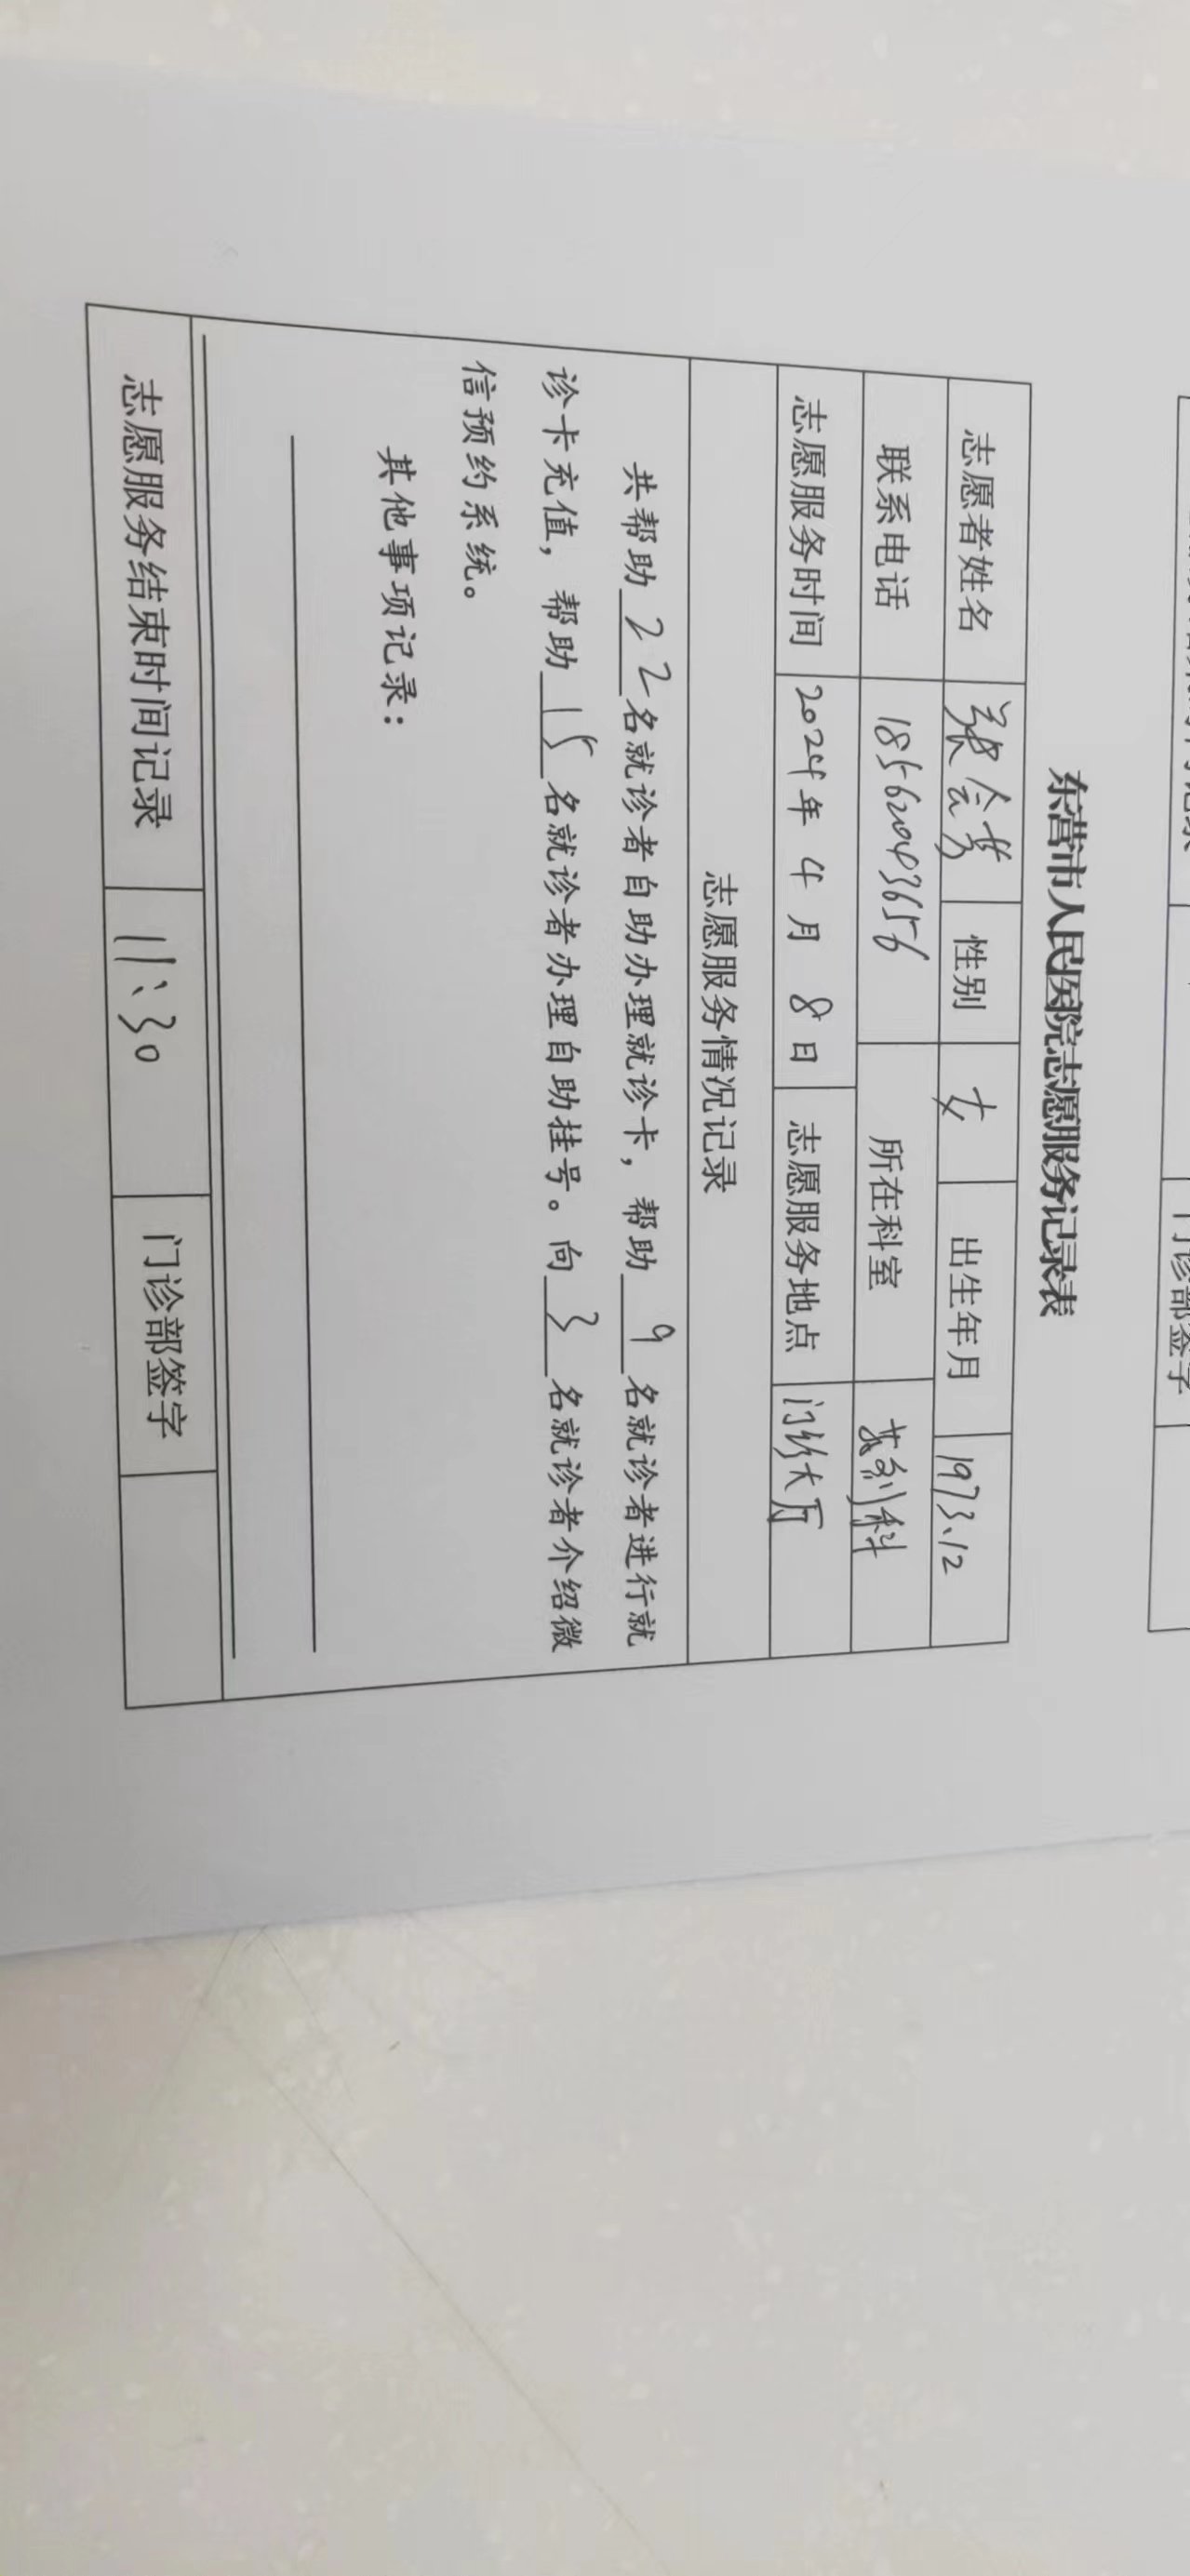 东营市人民医院志愿服务记录表
志愿者姓名 张会芳 性别 女 出生年月 1973.12
联系电话 18562043656 所在科室 科
志愿服务时间 2024年 4 月 8 日 志愿服务地点 门诊大厅
志愿服务情况记录
共帮助 22 名就诊者自助办理就诊卡，帮助 9 名就诊者进行就
诊卡充值，帮助 15 名就诊者办理自助挂号。向 3 名就诊者介绍微
信预约系统。
其他事项记录：
志愿服务结束时间记录 11:30 门诊部签字
门诊部签字